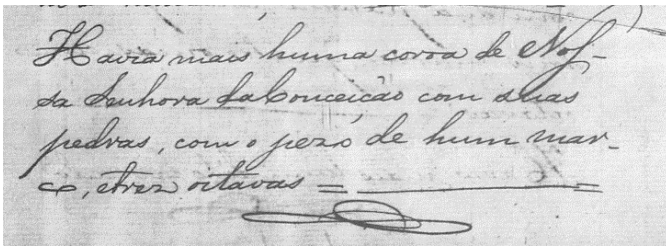 Havia mais huma coroa de Nos-
sa Senhora da Conceição com suas
pedras, com o pezo de hum mar-
co, etrez oitavas = ——— =